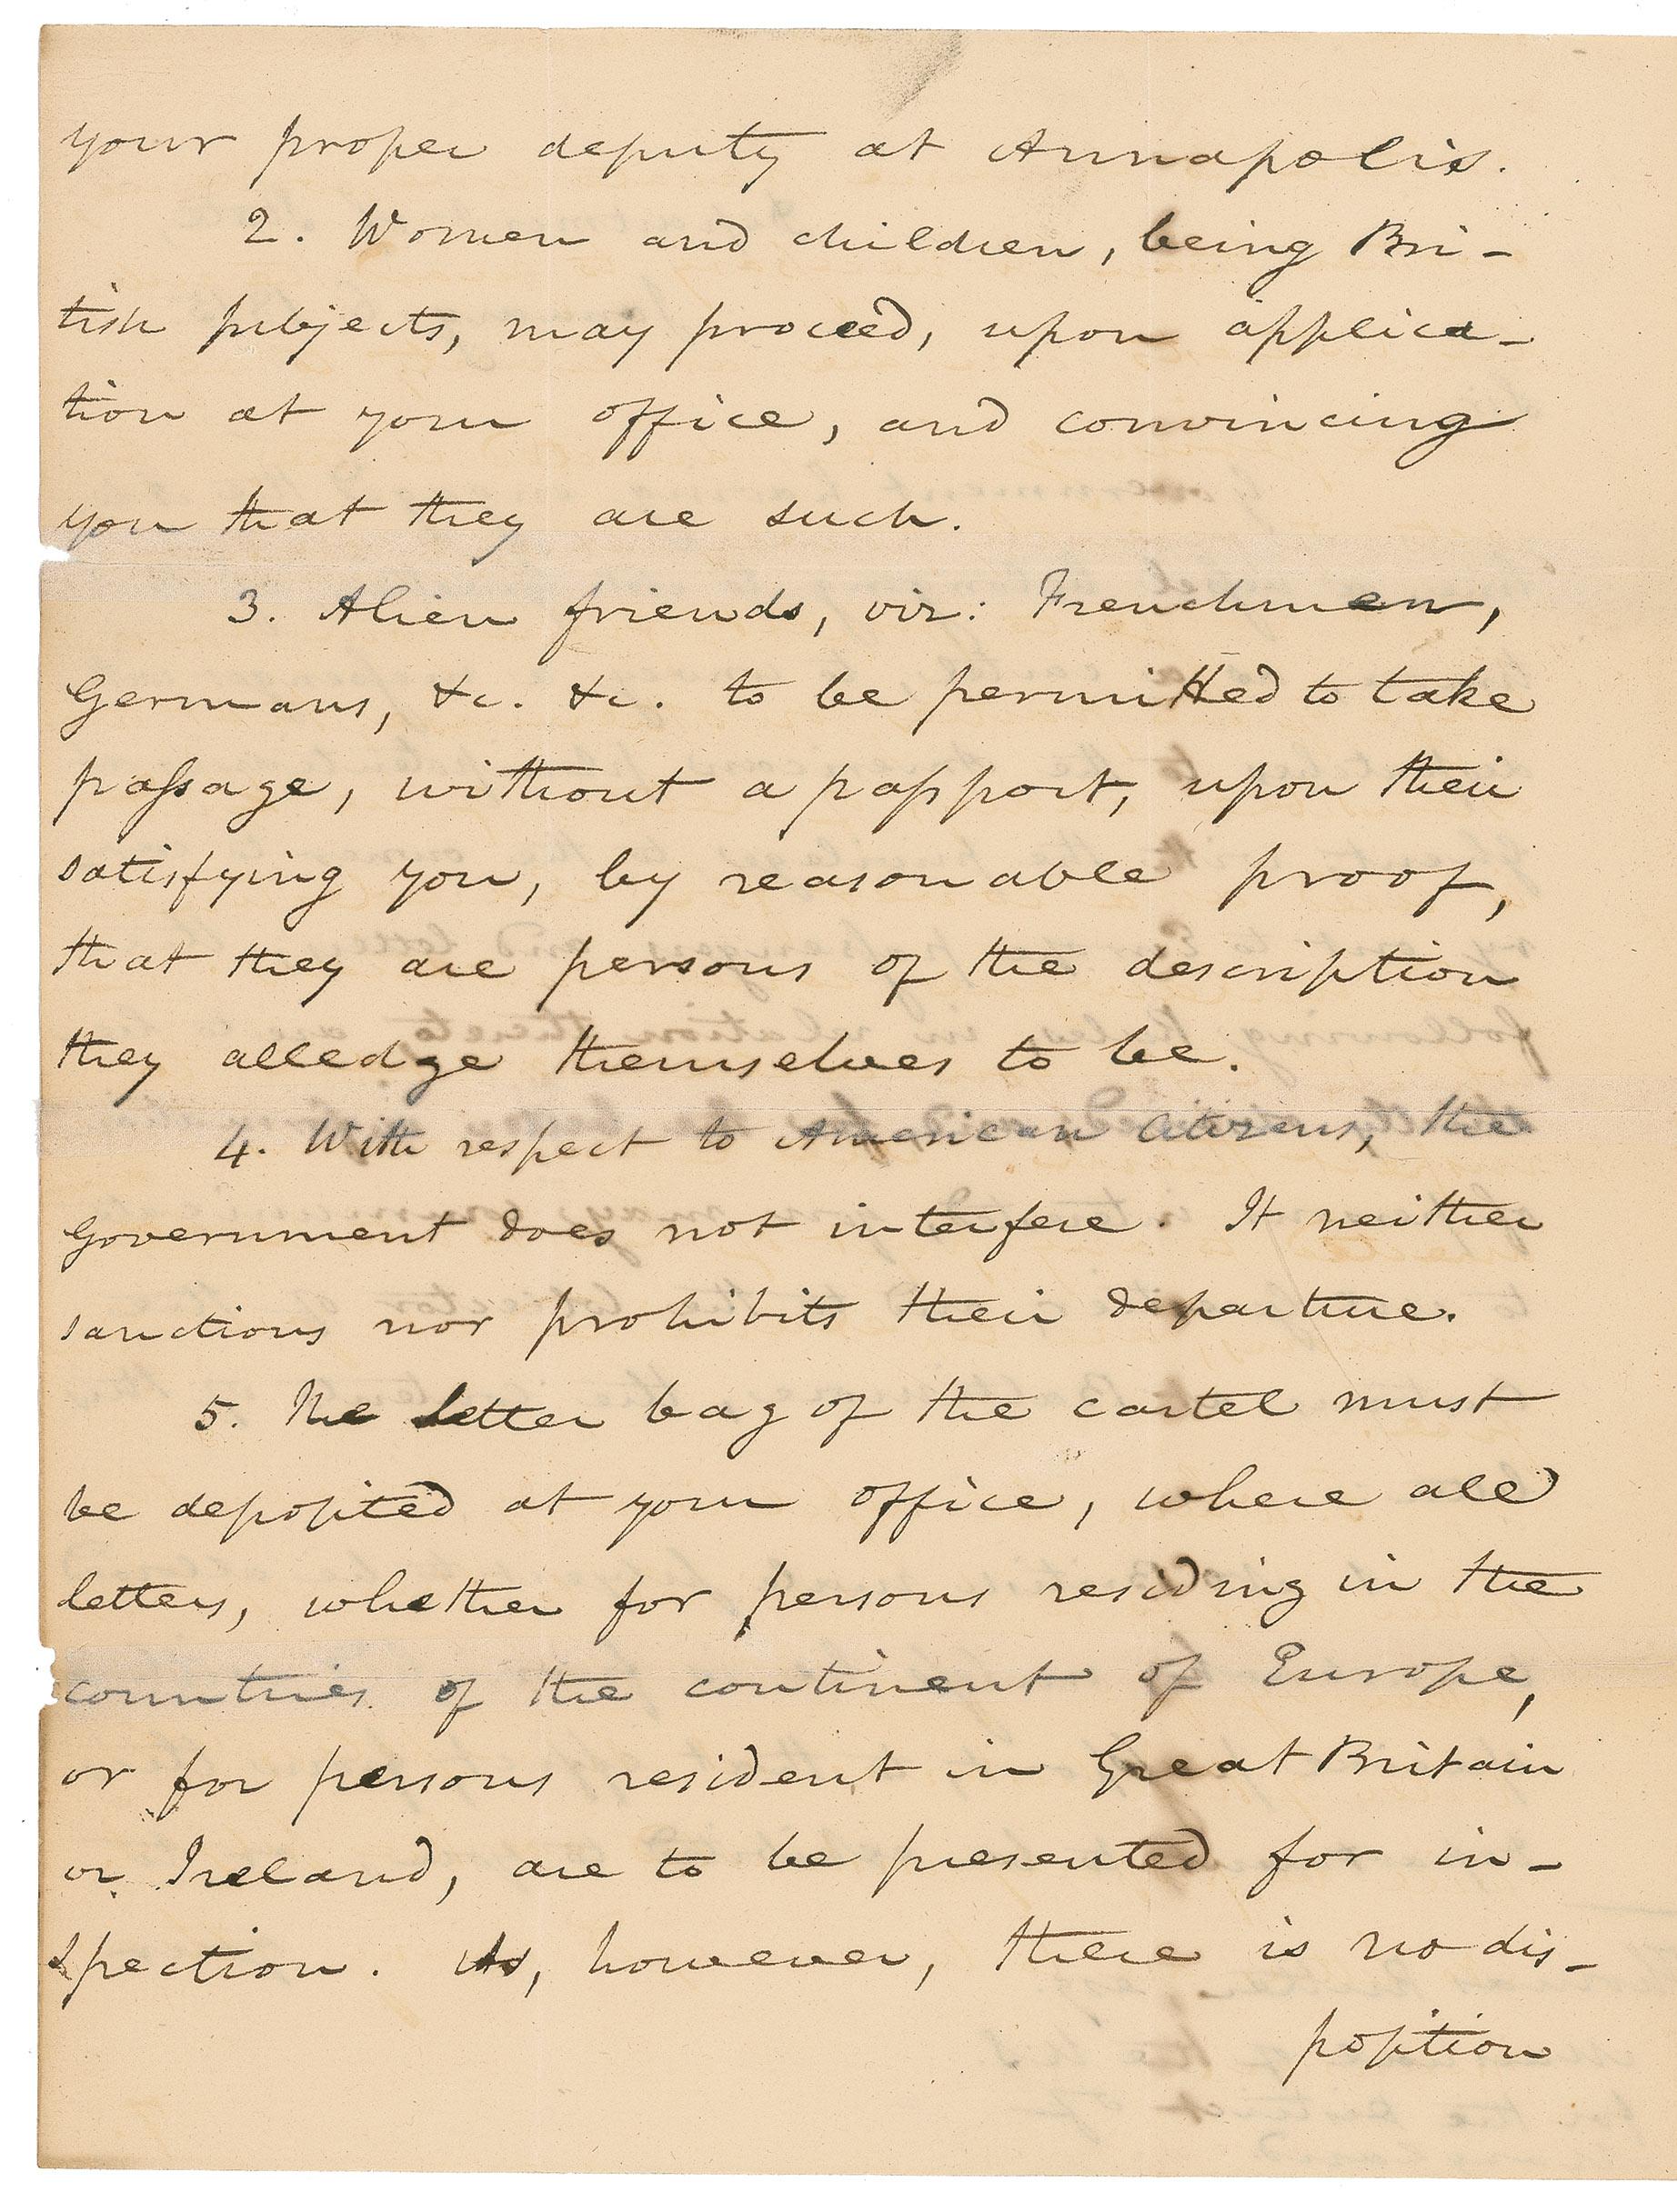 your proper deputy at Annapolis.
2. Women and children, being Bri-
tish subjects, may proceed, upon applica-
tion at your office, and convincing
you that they are such.
3. Alien friends, viz: Frenchmen,
Germans, &c. &c. to be permitted to take
passage, without a passport, upon their
satisfying you, by reasonable proof,
that they are persons of the description
they alledge themselves to be.
4. With respect to American Citizens, the
Government does not interfere. It neither
sanctions nor prohibits their departure.
5. The letter bag of the cartel must
be deposited at your office, where all
letters, whether for persons residing in the
countries of the continent of Europe,
or for persons resident in Great Britain
or Ireland, are to be presented for in-
spection. As, however, there is no dis-
position